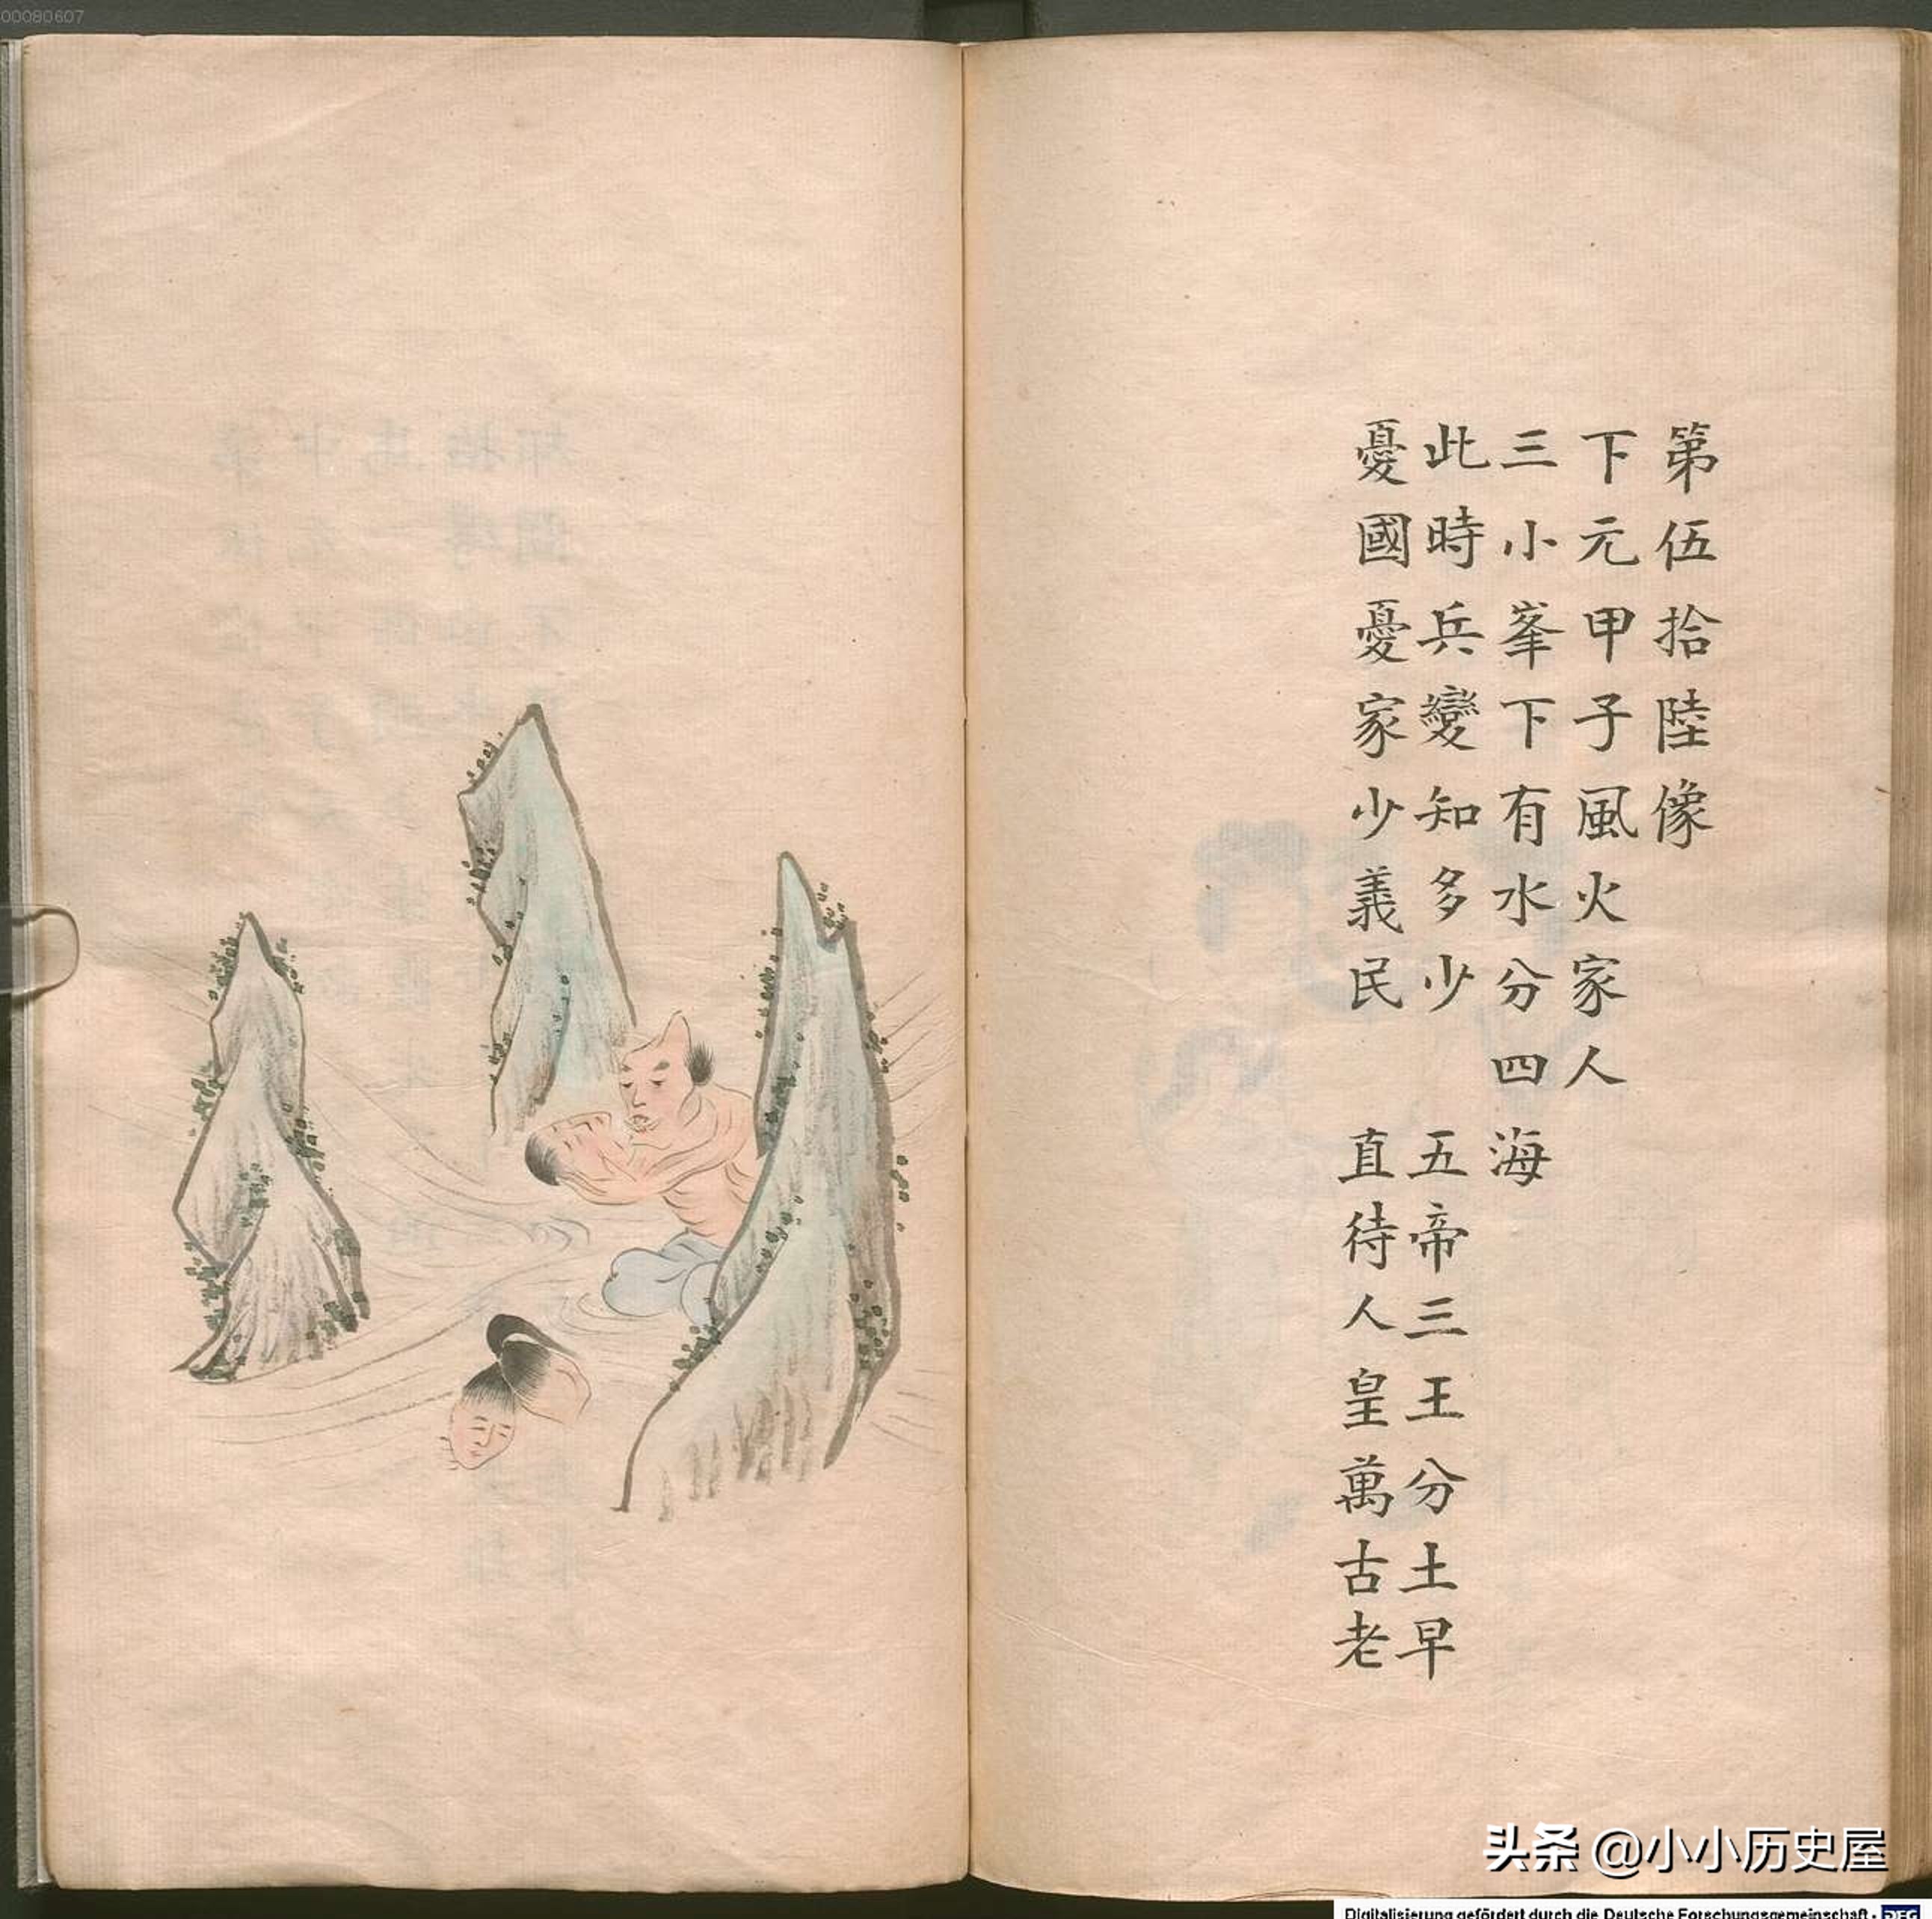 00080607
第伍拾陸像
下元甲子風火家人
三小峯下有水分四海
此時兵變知多少 五帝三王分土早
憂國憂家少義民 直待人皇萬古老
头条 @小小历史屋
Digitalisierung gefördert durch die Deutsche Forschungsgemeinschaft - DFG